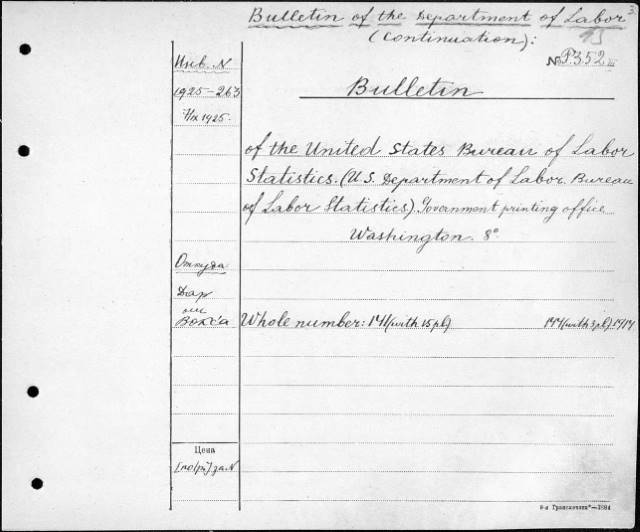 3.
Bulletin of the Department of Labor
(Continuation):
15
№ P.352 III
Инв. N
1925-263
7/IX 1925.
Bulletin
of the United States Bureau of Labor
Statistics. (U.S. Department of Labor. Bureau
of Labor Statistics) Government printing office
Washington. 8°
Откуда
Дар
от
Вокс'а
Whole number: 141 (with 15 pl)
144 (with 3 pl). 1914
Цена
[1 о/р?] за N